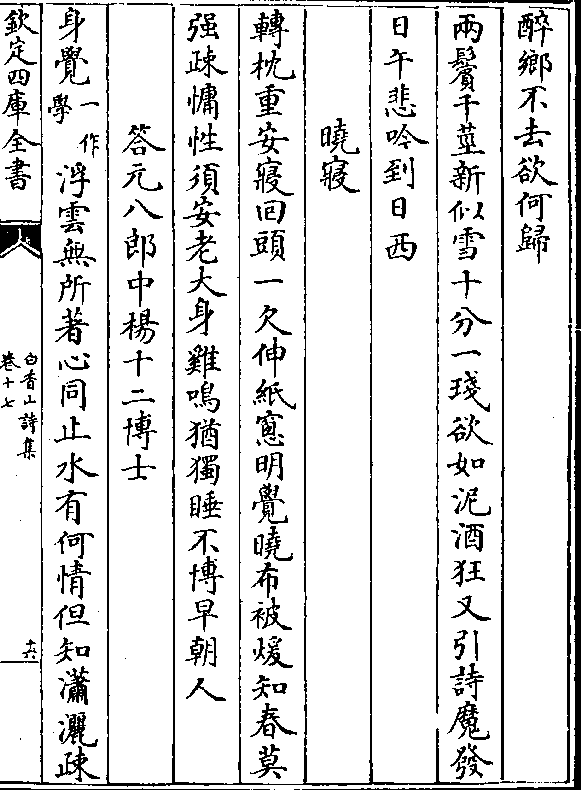 醉鄉不去欲何歸
兩鬢千莖新似雪十分一琖欲如泥酒狂又引詩魔發
日午悲吟到日西
曉寢
轉枕重安寢回頭一欠伸紙窻明覺曉布被煖知春莫
强疎慵性須安老大身雞鳴猶獨睡不博早朝人
答元八郎中楊十二博士
身覺一作學浮雲無所著心同止水有何情但知瀟灑疎
欽定四庫全書
白香山詩集
卷十七
十六